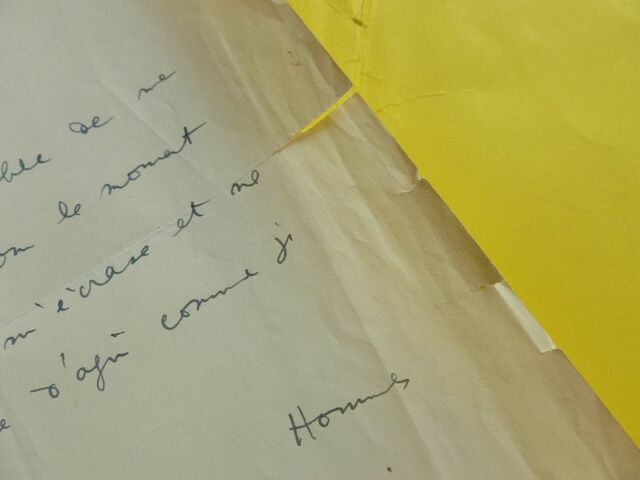 de me
le moment
m'écrase et ne
d'agir comme j
Hommes